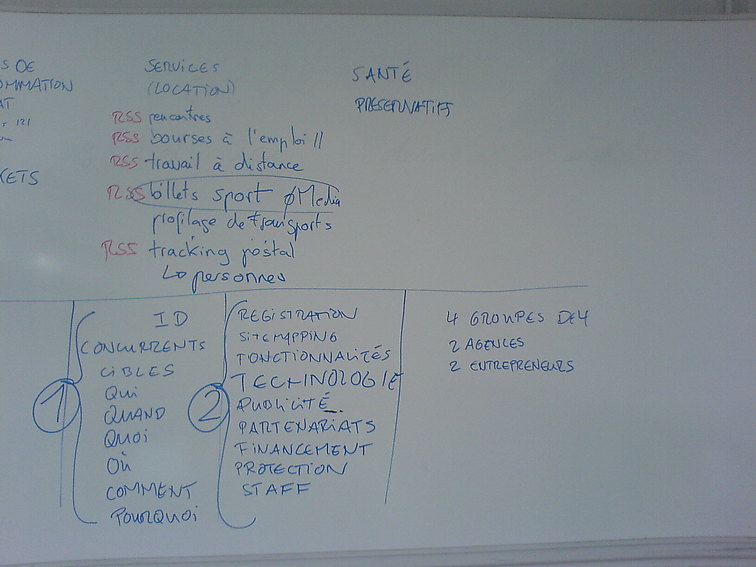 S DE
OMMATION
AT
, 121
KETS
SERVICES
(LOCATION)
RSS rencontres
RSS bourses à l'emploi !!
RSS travail à distance
RSS billets sport φMedia
profilage de transports
RSS tracking postal
↳ personnes
SANTÉ
PRESERVATIFS
1
ID
CONCURRENTS
CIBLES
QUI
QUAND
QUOI
OÙ
COMMENT
POURQUOI
2
REGISTRATION
SITEMAPPING
FONCTIONNALITÉS
TECHNOLOGIE
PUBLICITÉ
PARTENARIATS
FINANCEMENT
PROTECTION
STAFF
4 GROUPES DE 4
2 AGENCES
2 ENTREPRENEURS